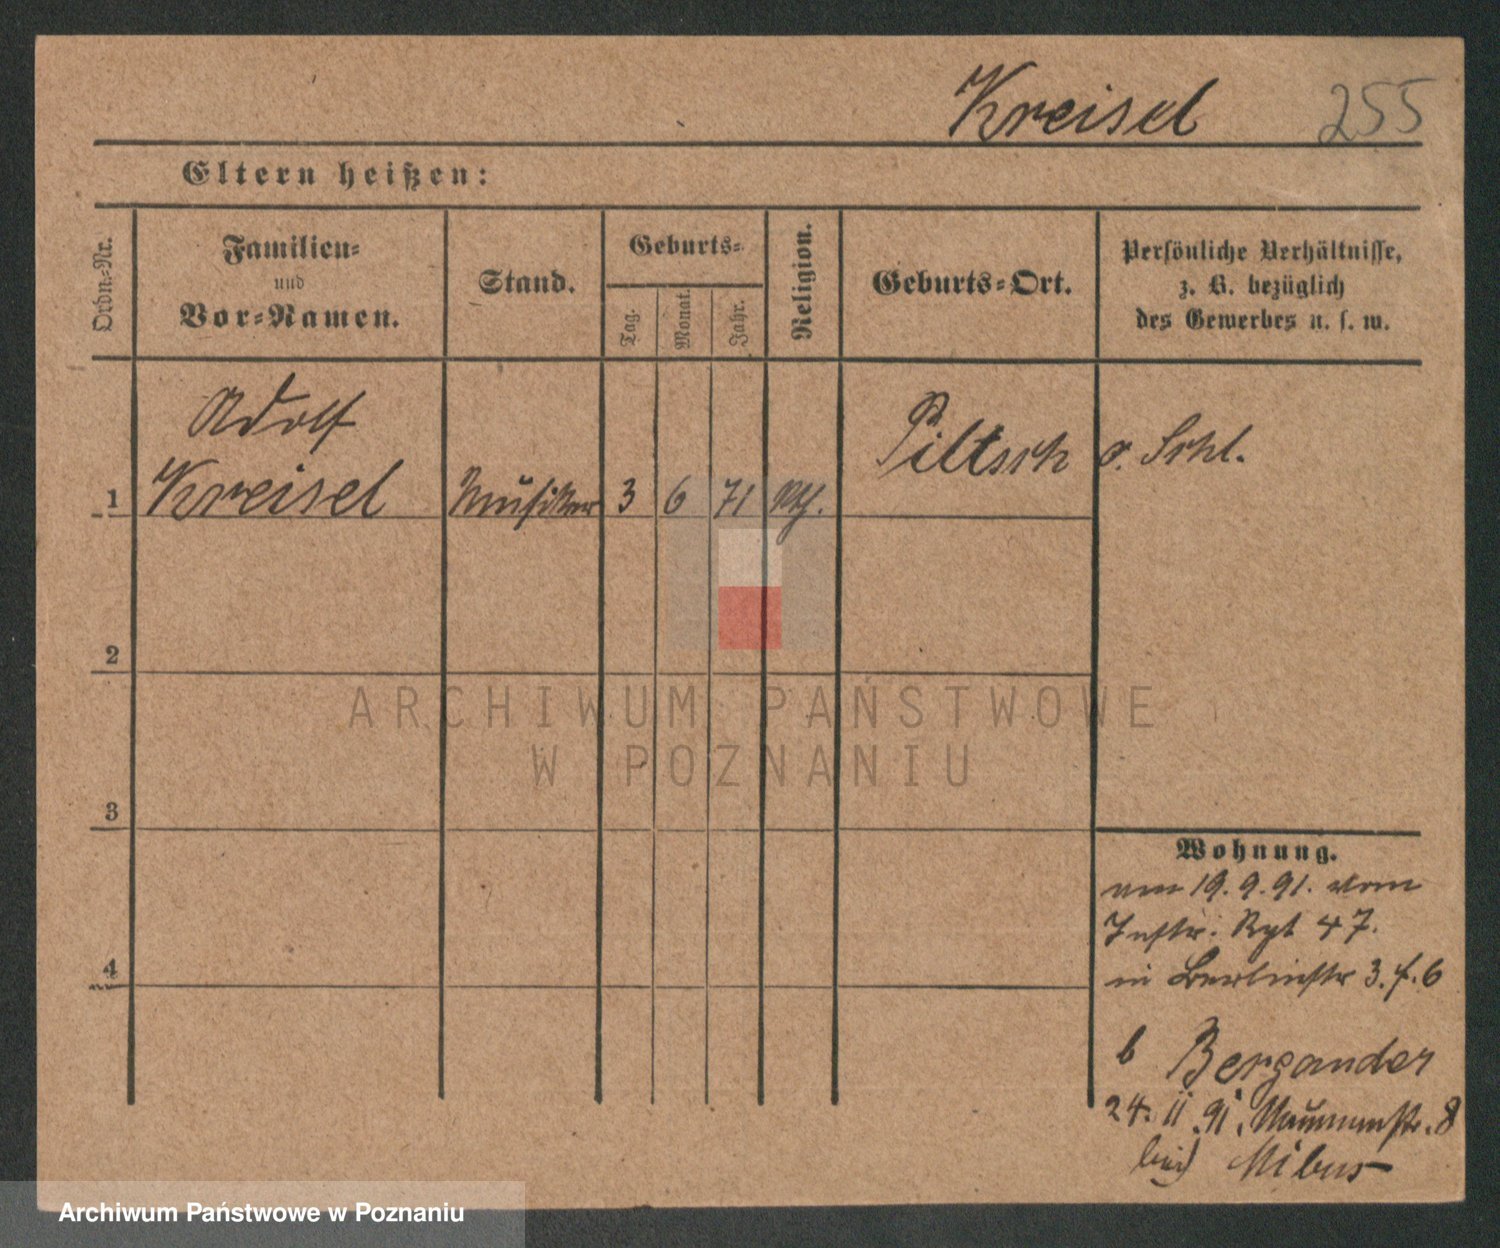 Kreisel 255
Eltern heißen:
Ordn.-Nr.
Familien-
und
Vor-Namen.
Stand.
Geburts-
Tag.
Monat.
Jahr.
Religion.
Geburts-Ort.
Persönliche Verhältnisse,
z. B. bezüglich
des Gewerbes u. s. w.
Adolf
1 Kreisel Musiker 3 6 71 Piltsch o. Schl.
2
3
4
Wohnung.
am 19. 9. 91. vom
Inftr. Rgt 47.
in Berlinstr 3. f. 6
b Bergander
24. 11. 91. 8
bei Mibus
ARCHIWUM PAŃSTWOWE
W POZNANIU
Archiwum Państwowe w Poznaniu